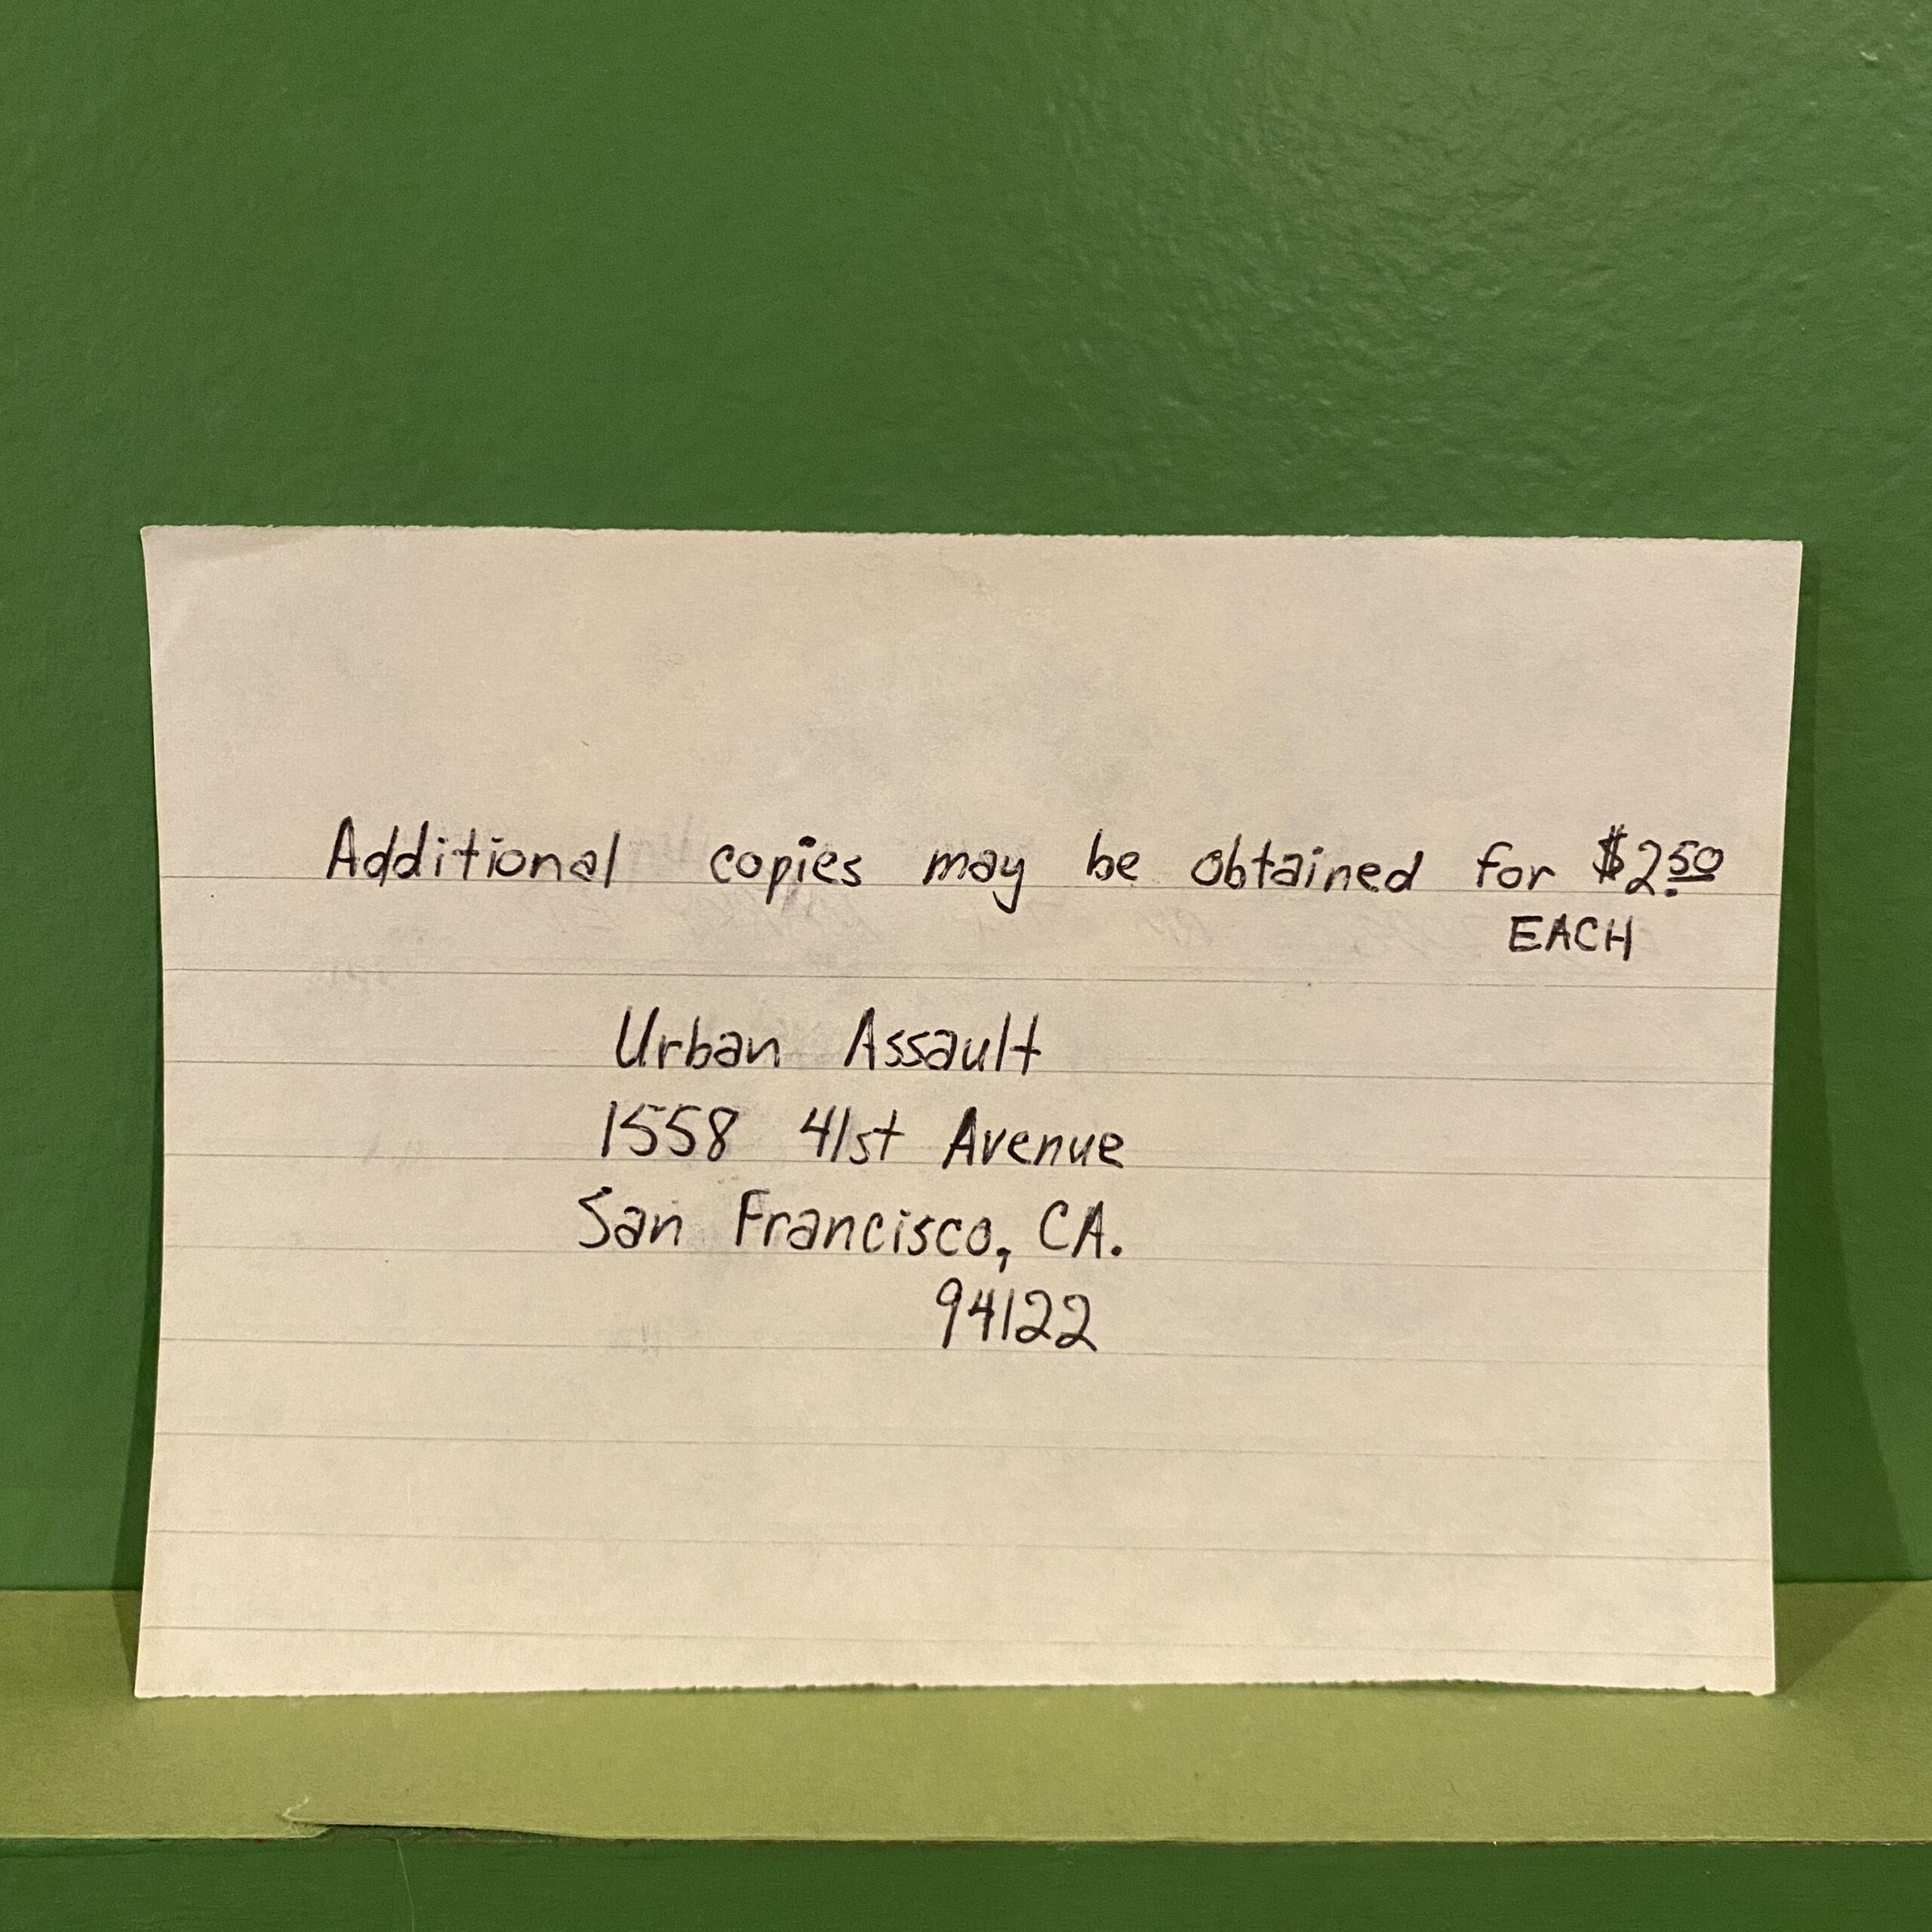 Additional copies may be obtained for $2.50
EACH
Urban Assault
1558 41st Avenue
San Francisco, CA.
94122